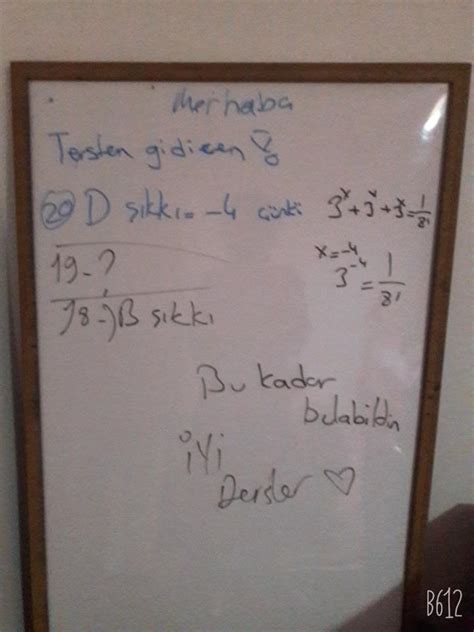 Merhaba
Tersten gidicem
20 D şıkkı = -4 çünki 3ˣ+3ˣ+3ˣ=1/81
x=-4
3⁻⁴=1/81
19-?
18-) B şıkkı
Bu kadar
bulabildin
iYi
Dersler ♡
B612